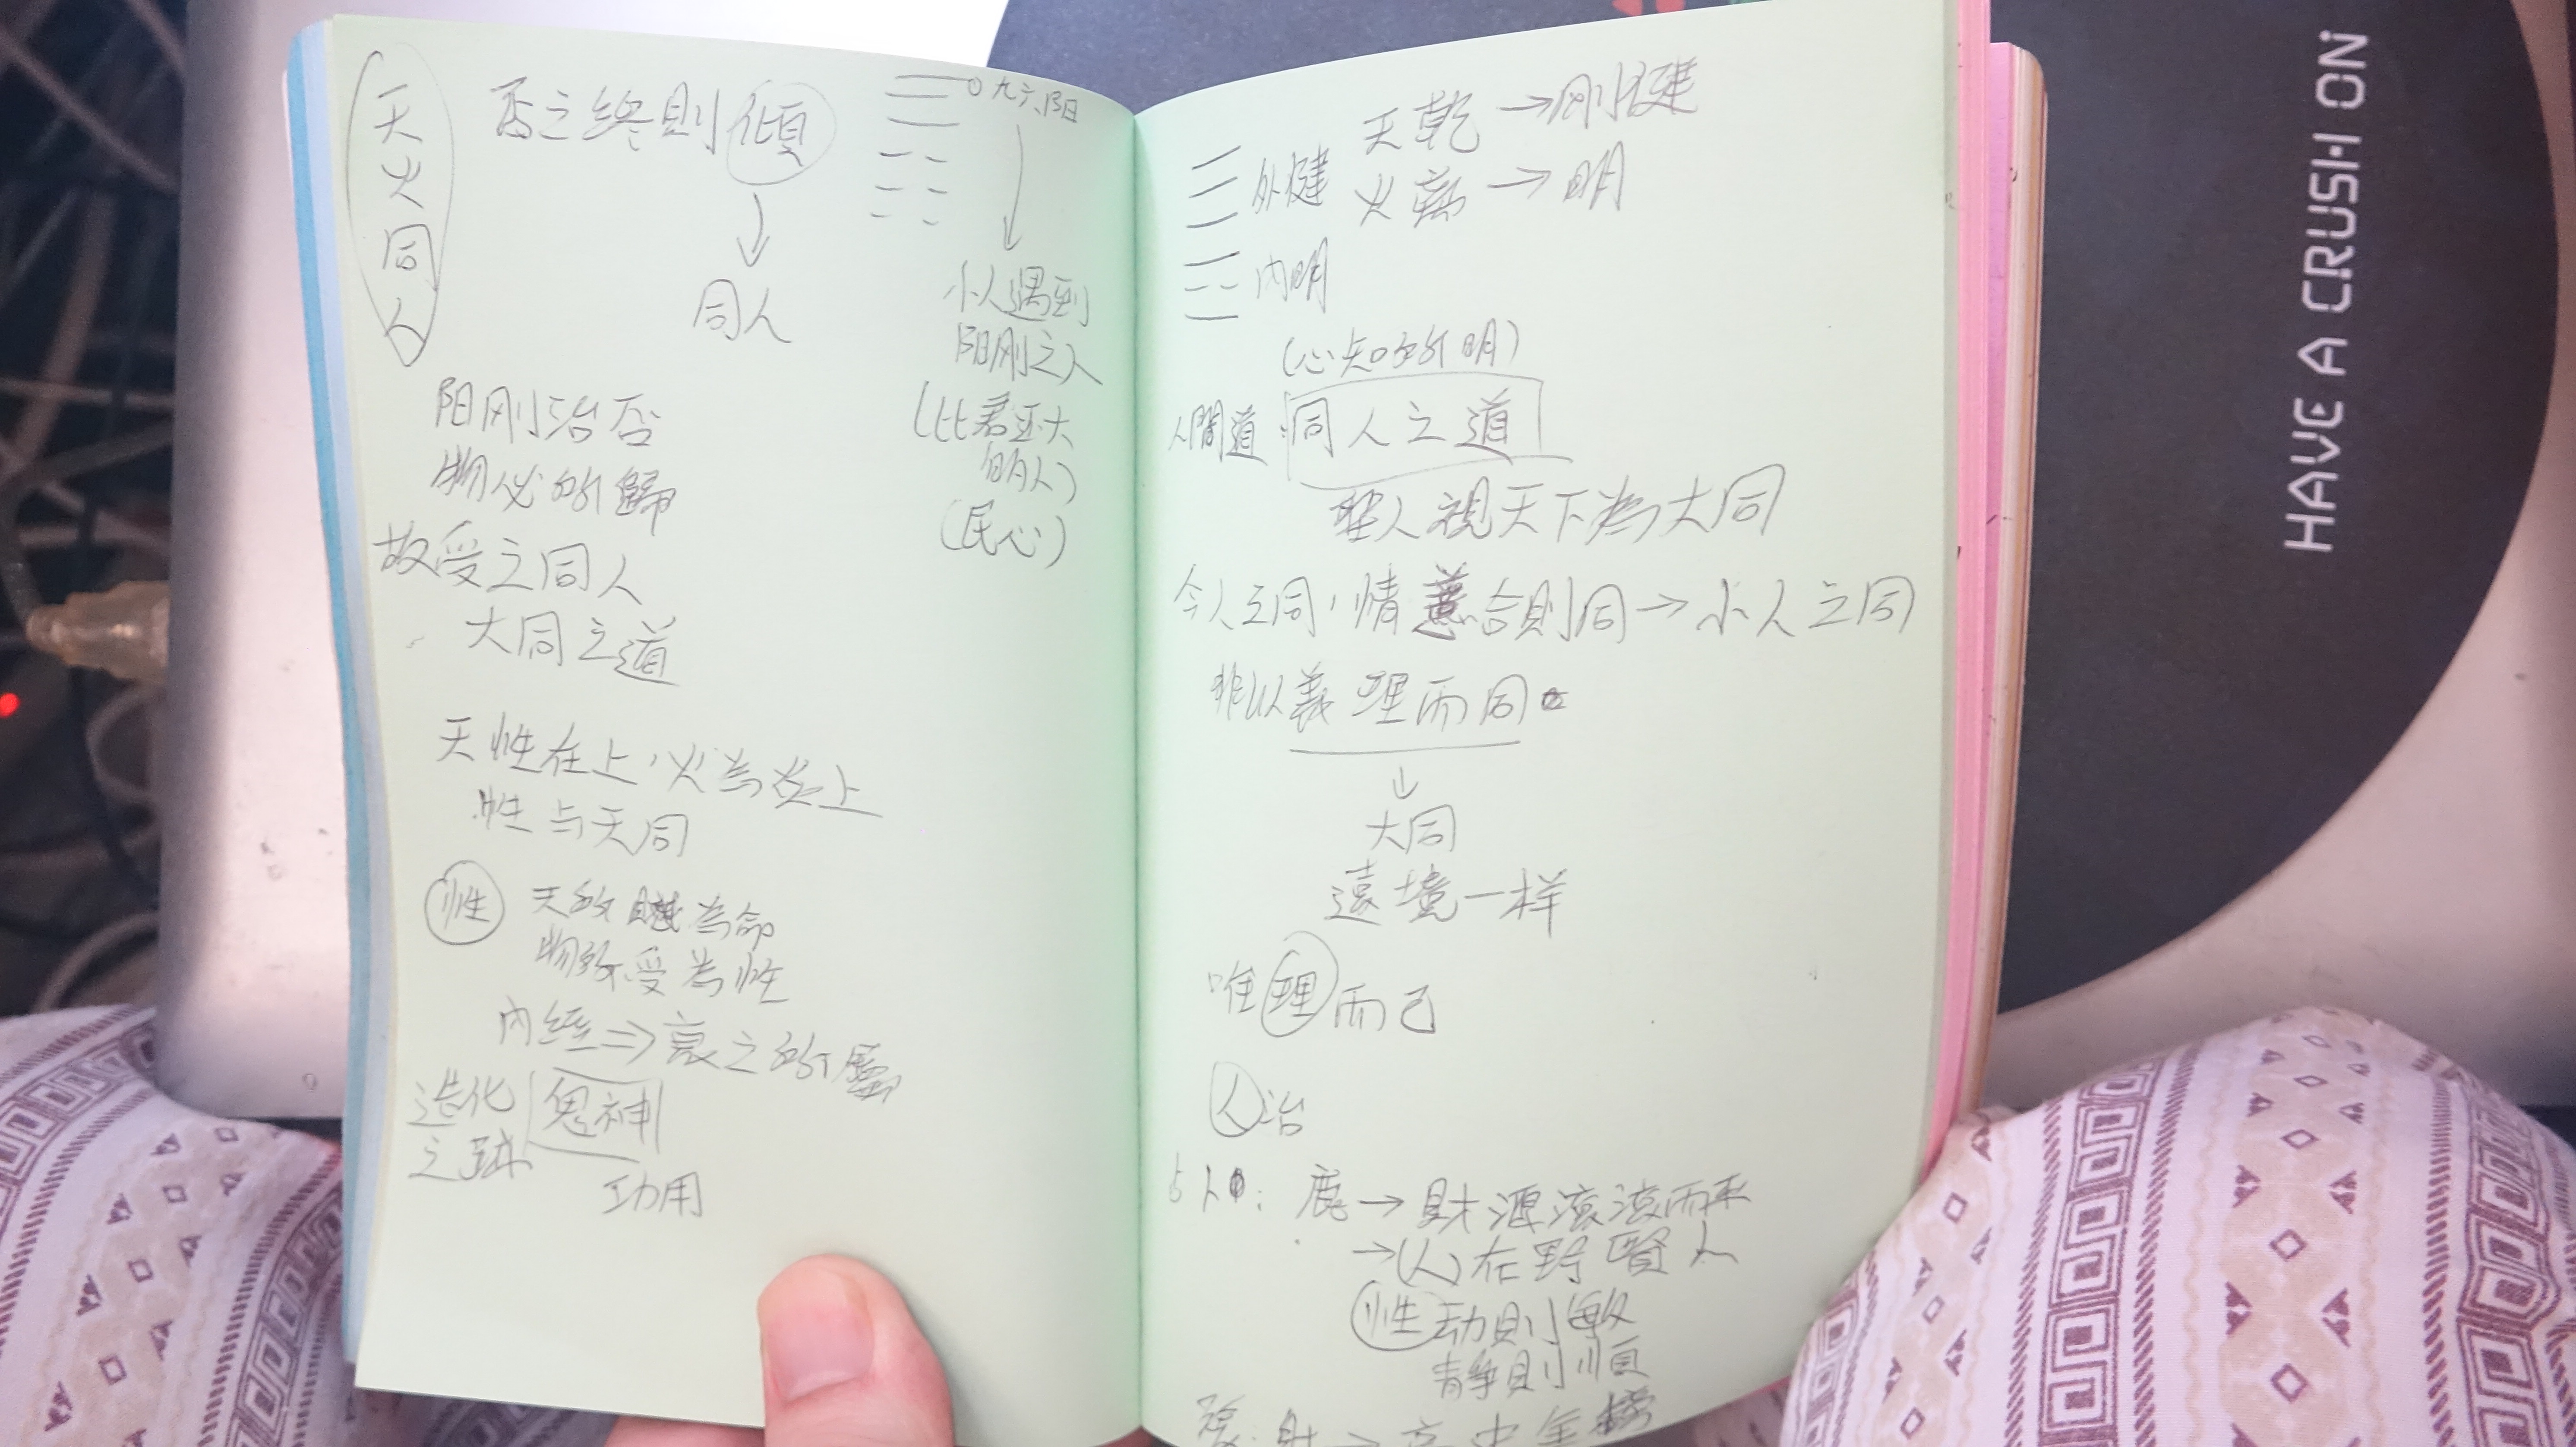 天火同人
否之終則傾
同人
九六、阳
小人遇到
阳刚之人
(比君王大
的人)
(民心)
阳刚治否
物必所歸
故受之同人
大同之道
天性在上，火為炎上
性与天同
性 天所賦為命
物所受為性
內經⇒哀之所屬
造化
之跡
鬼神
功用
天乾→刚健
火離→明
外健
内明
(心知所明)
人間道：同人之道
聖人視天下為大同
今人之同，情意合則同→小人之同
非以義理而同
↓
大同
遠境一样
唯理而已
人治
占卜：鹿→財源滾滾而來
→(人)在野賢人
性 动則敏
靜則順
HAVE A CRUSH ON